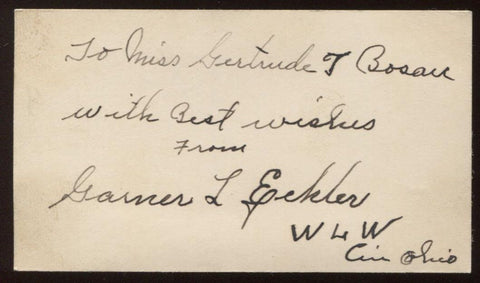 To Miss Gertrude T Bosau
with Best wishes
From
Garner L Eckler
W L W
Cin Ohio